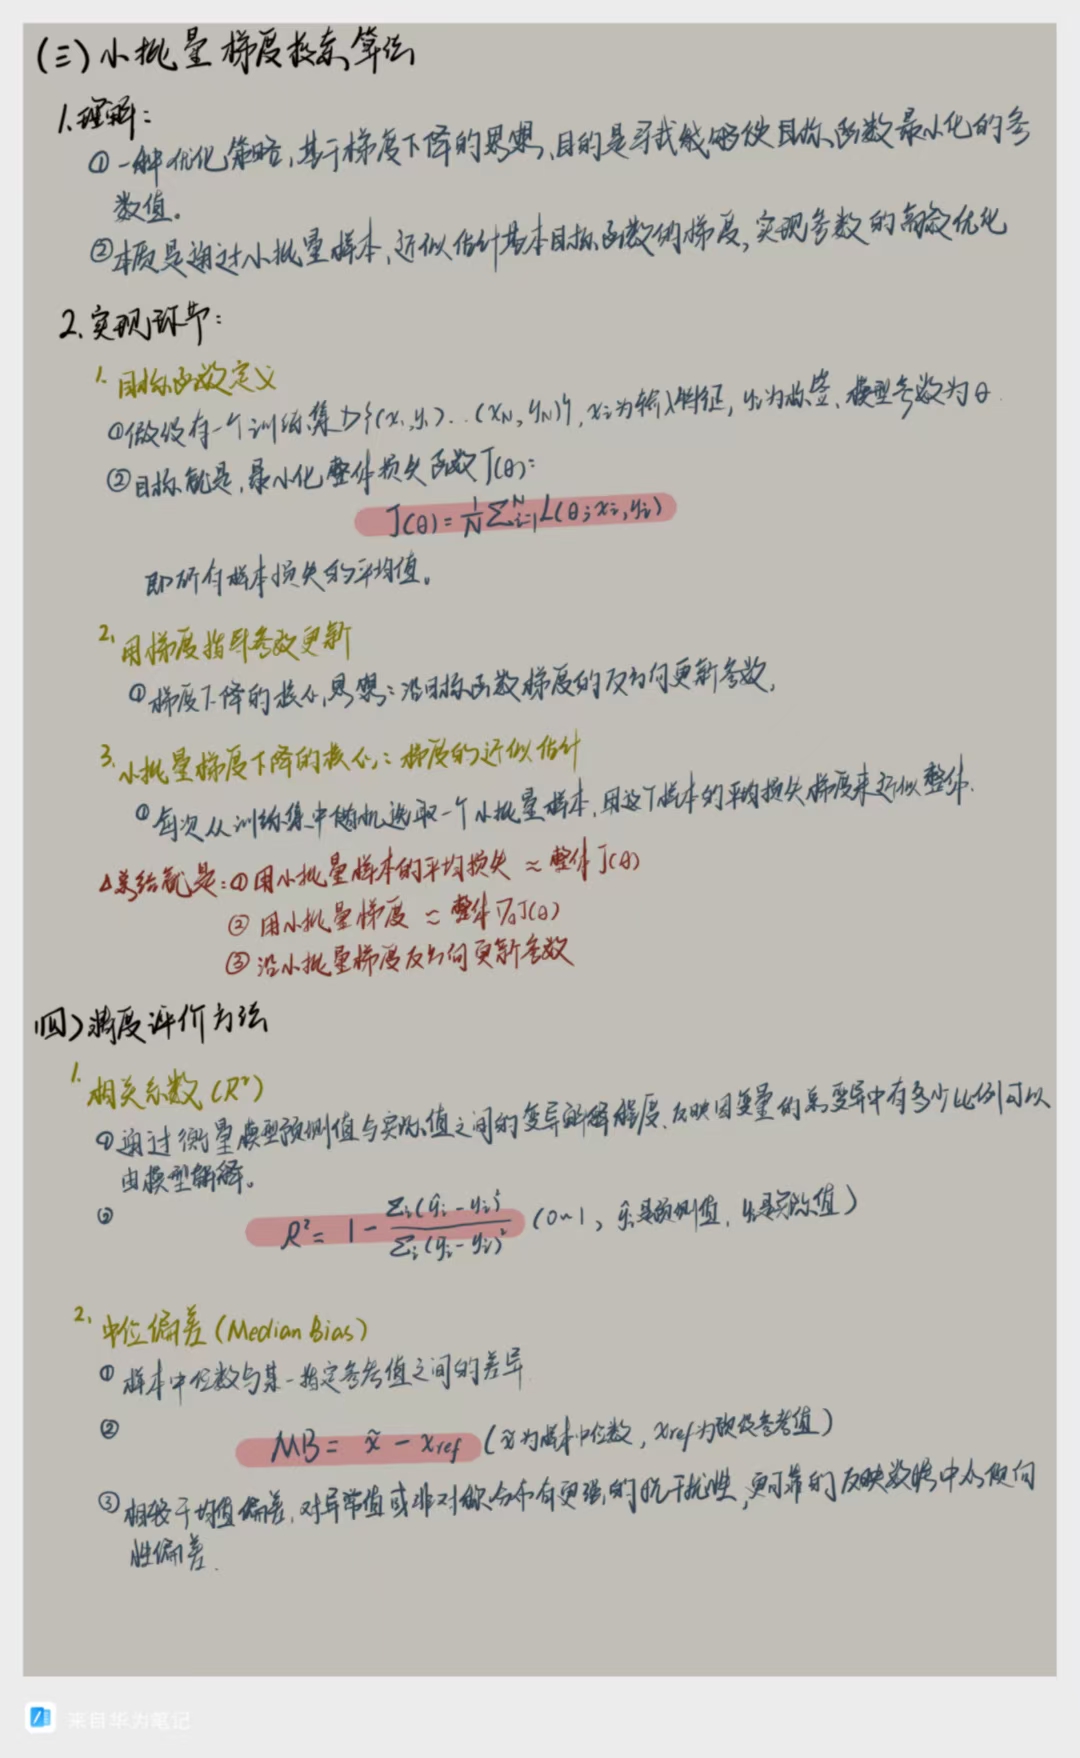 (三)小批量梯度搜索算法
1.理解:
①一种优化策略,基于梯度下降的思想,目的是寻找能够使目标函数最小化的参
数值。
②本质是通过小批量样本,近似估计基本目标函数的梯度,实现参数的高效优化
2.实现环节:
1.目标函数定义
①假设有一个训练集D{(x₁,y₁)...(xN,yN)},xi为输入特征,yi为标签,模型参数为θ.
②目标就是,最小化整体损失函数J(θ):
J(θ)=1/N Σᴺᵢ₌₁L(θ;xi,yi)
即所有样本损失的平均值。
2.用梯度指导参数更新
①梯度下降的核心思想:沿目标函数梯度的反方向更新参数,
3.小批量梯度下降的核心:梯度的近似估计
①每次从训练集中随机选取一个小批量样本,用这个样本的平均损失梯度来近似整体.
△总结就是:①用小批量样本的平均损失≈整体J(θ)
②用小批量梯度≈整体∇θJ(θ)
③沿小批量梯度反方向更新参数
(四)精度评价方法
1.相关系数(R²)
①通过衡量模型预测值与实际值之间的变异解释程度,反映因变量的总变异中有多少比例可以
由模型解释。
② R²= 1 - Σi(ŷi-yi)²/Σi(ȳi-yi)² (0~1, ŷi是预测值, yi是实际值)
2.中位偏差(Median Bias)
①样本中位数与某一指定参考值之间的差异
② MB= x̃ - xref (x̃为样本中位数, xref为预设参考值)
③相较于均值偏差,对异常值或非对称分布有更强的抗干扰性,更可靠的反映数据中心倾向
性偏差.
来自华为笔记